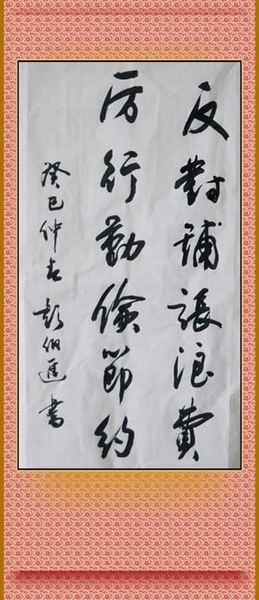 反對鋪張浪費
厉行勤儉節約
癸巳仲春彭伯進書